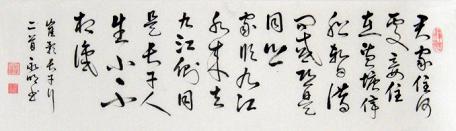 君家住何
處妾住
在橫塘停
船暫借
問或恐是
同鄉
家臨九江
水來去
九江側同
是長干人
生小不
相識
崔顥長干行
二首 永明書